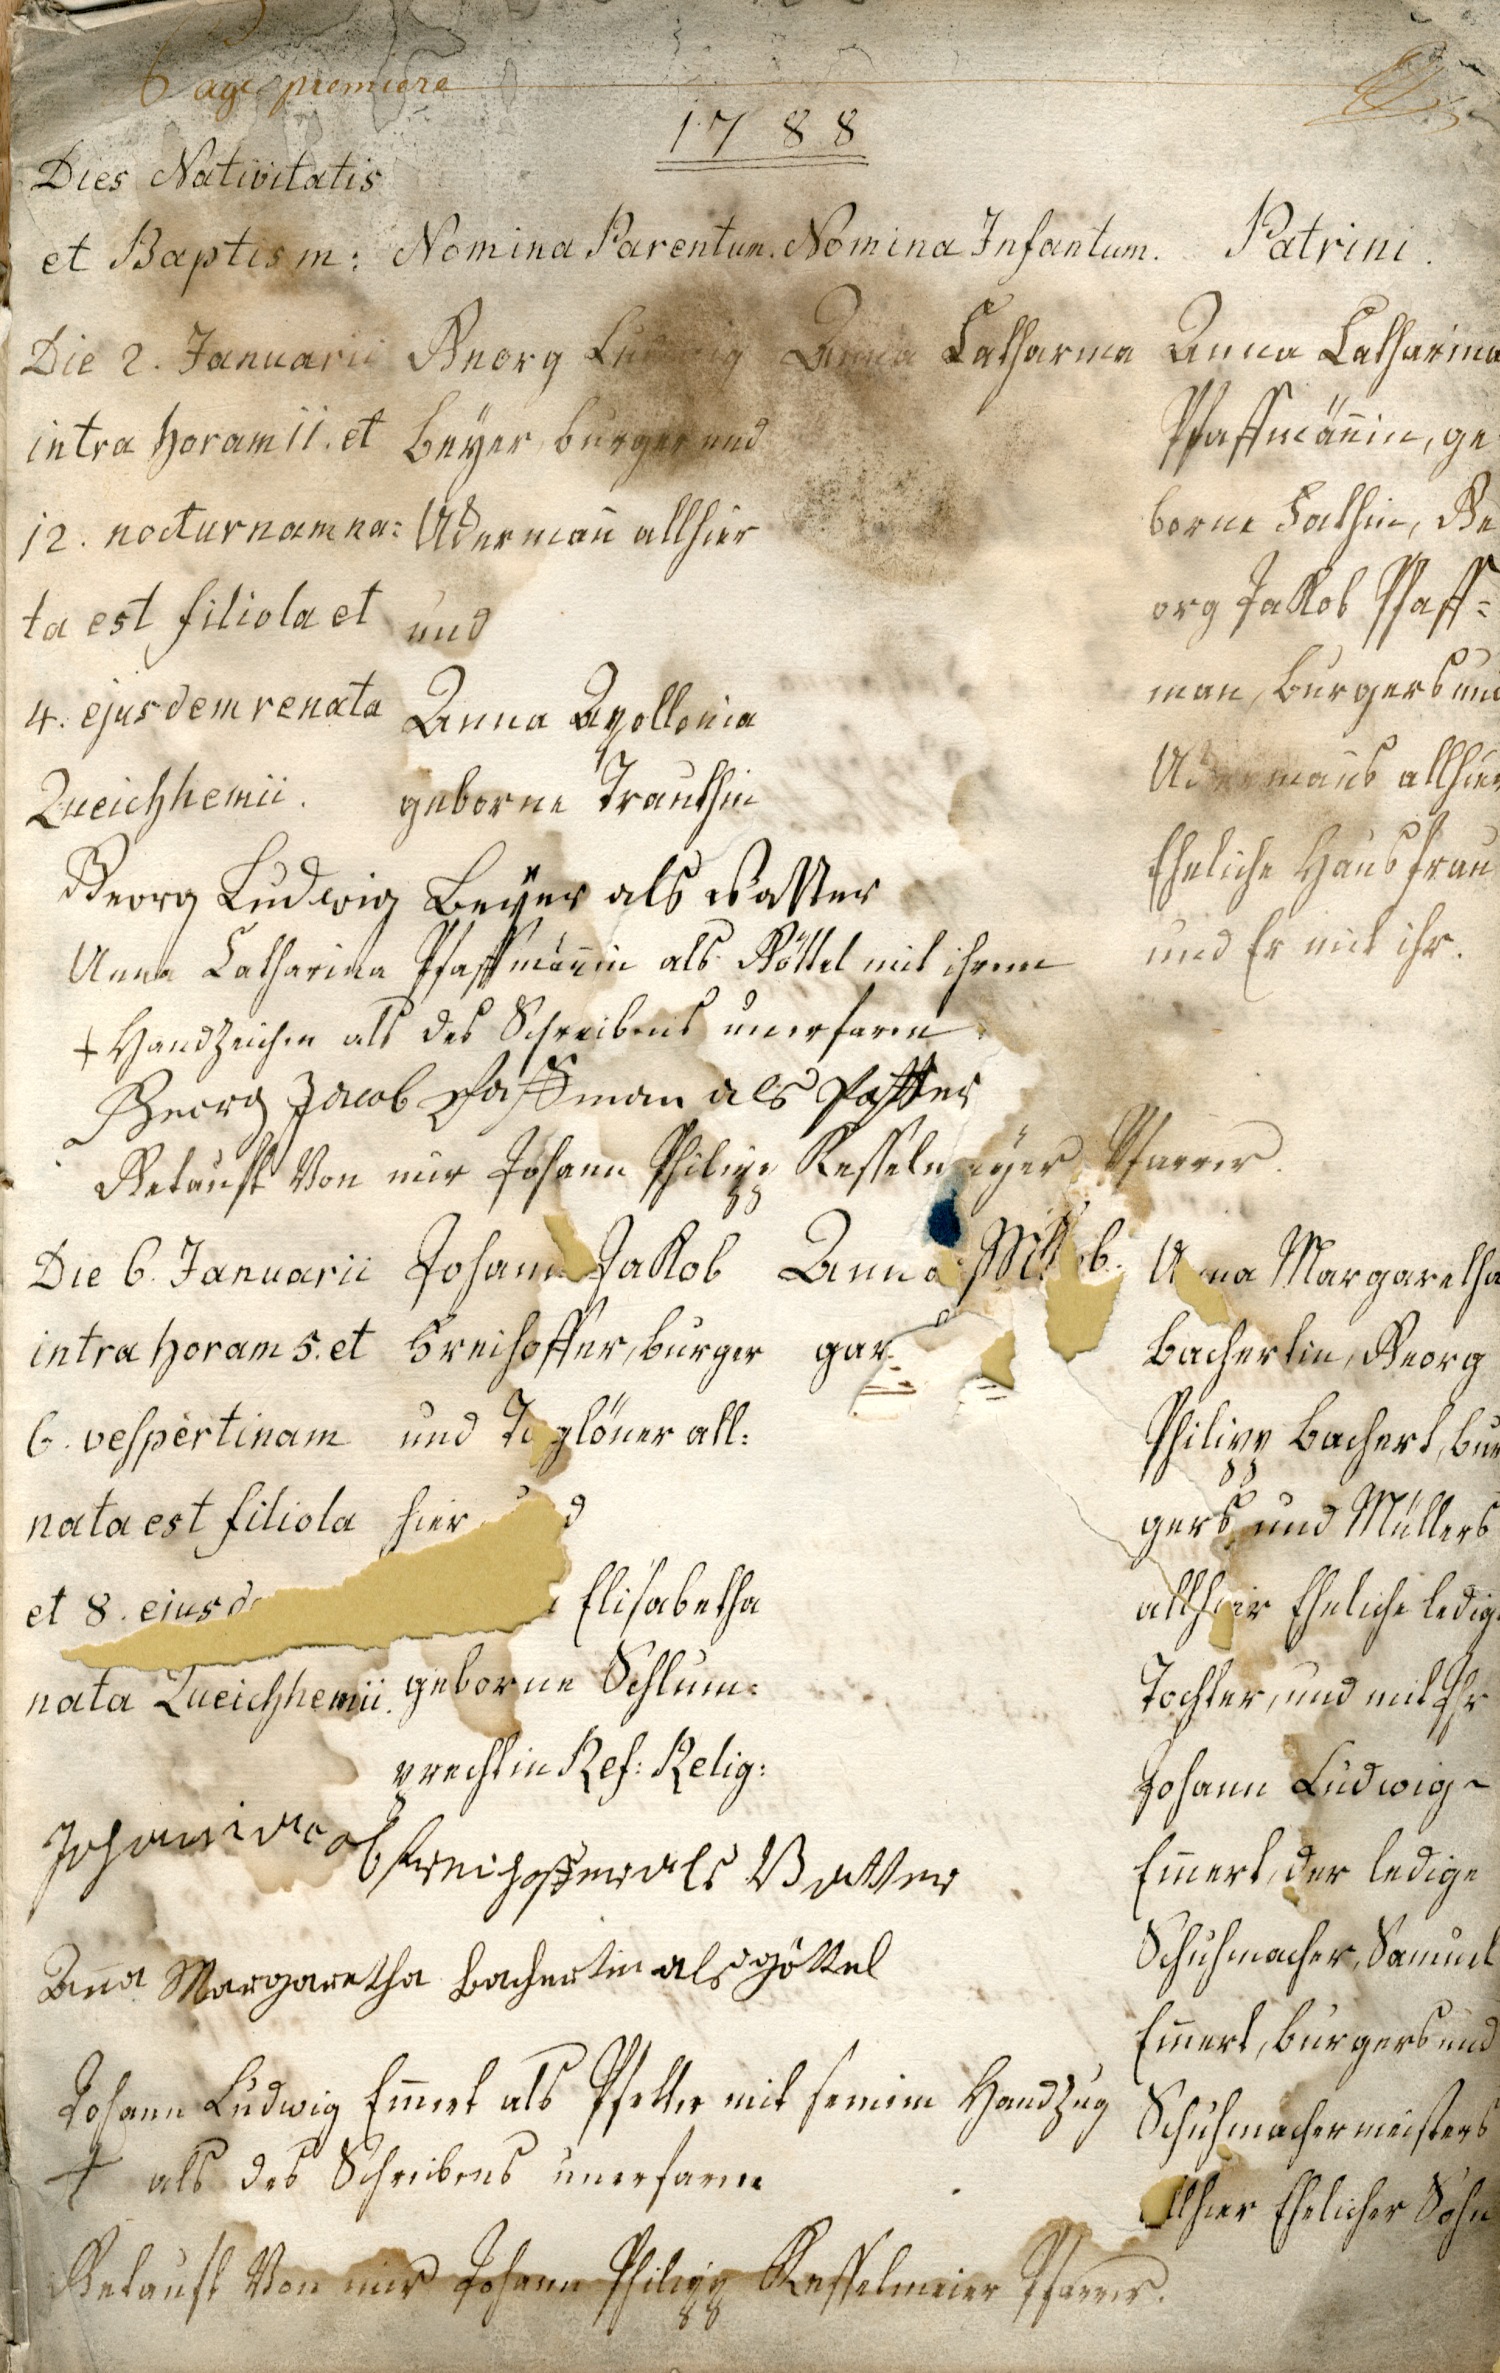 Page premiere
1788
Dies Nativitatis
et Baptism: Nomina Parentum. Nomina Infantum. Patrini.
Die 2. Januarii
intra horam 11. et
12. nocturnam na:
ta est filiola et
4. ejusdem renata
Queichhemii.
Georg Ludwig
Beÿer, burger und
Akermañ allhier
und
Anna Apollonia
geborne Trauthin
Anna Catharina
Anna Catharina
Pfaffmäñin, ge
borne Hathin, Ge
org Jakob Pfaff=
man, burgers und
allhier
Eheliche Hausfrau
und Er mit ihr.
Georg Ludwig Beÿer als Vatter
Anna Catharina Pfaffmäñin als Göttel mit ihrem
+ Handzeichen als des Schreibens unerfaren
Georg Jacob Pfaffman als Pfetter
Getauft Von mir Johann Philipp Kesselmeyer Pfarrer.
Die 6. Januarii
intra horam 5. et
6. vespertinam
nata est filiola
et 8. ejusde
nata Queichhemii.
Johann Jakob
Freihoffer, burger
und Taglöner all:
hier
Elisabetha
geborne Schlum:
prechtin Ref: Relig:
Anna
gar
Anna Margaretha
Bachertin, Georg
Philipp Bachert, bur
gers und Müllers
allhier Eheliche ledige
Tochter, und mit Ihr
Johann Ludwig
Em̃ert, der ledige
Schuhmacher, Samuel
Em̃ert, burgers und
Schuhmachermeisters
allhier Ehelicher Sohn
Johan Jacob Freihoffer als Vatter
Aña Margaretha Bachertin als göttel
Johann Ludwig Em̃ert als Pfetter mit seinem Handzug
+ als des Schreibens unerfaren
Getauft Von mir Johann Philipp Kesselmeier Pfarrer.